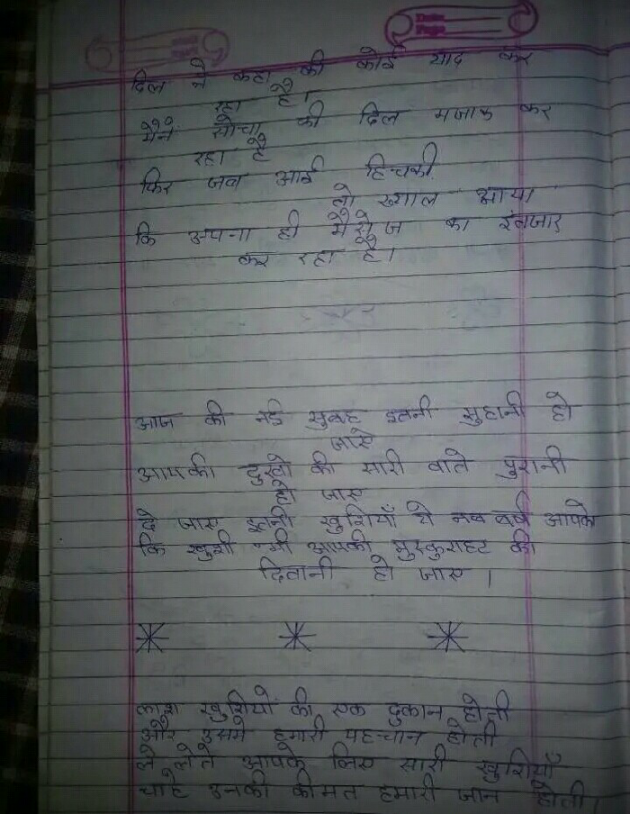 Date
Page
दिल ने कहा की कोई याद कर
रहा है।
मैने सोचा की दिल मजाक कर
रहा है
फिर जब आई हिचकी
तो ख्याल आया
कि अपना ही मैसेज का इंतजार
कर रहा है।
आज की नई सुबह इतनी सुहानी हो
जाये
आपकी दुखो की सारी बाते पुरानी
हो जाए
दे जाए इतनी खुशियाँ ये नव वर्ष आपके
कि खुशी भी आपकी मुस्कुराहट की
दिवानी हो जाए।
काश खुशियों की एक दुकान होती
और उसमे हमारी पहचान होती
ले लेते आपके लिए सारी खुशियाँ
चाहे उनकी कीमत हमारी जान होती।